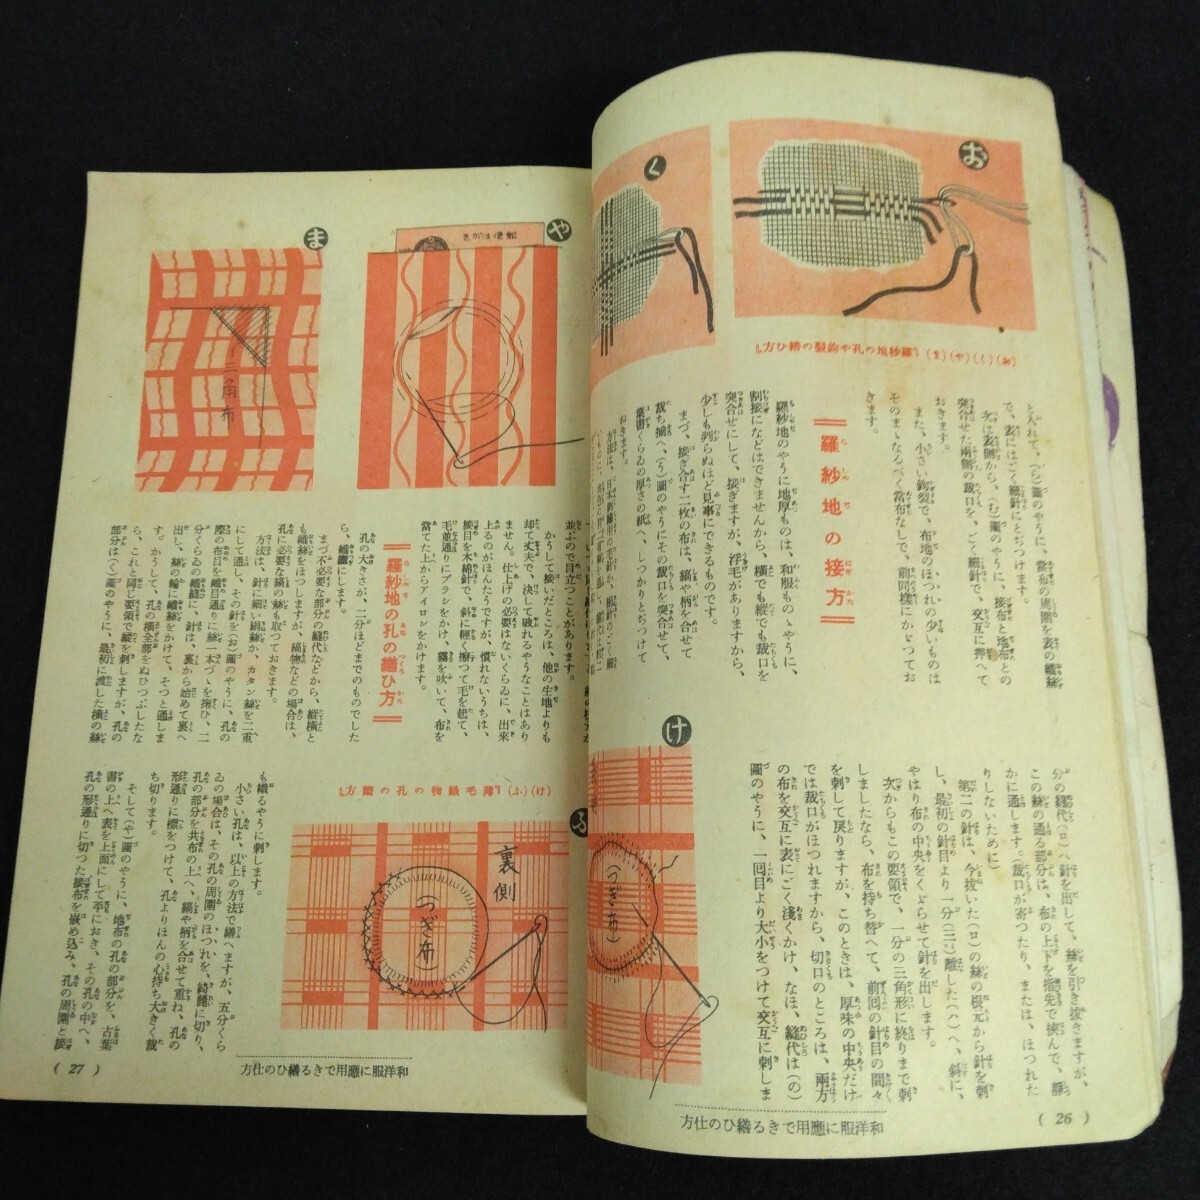 お
く
(お)(く)(や)(ま)『羅紗地の孔や鉤裂の繕ひ方』
と入れて、(ら)圖のやうに、當布の周圍を表の織絲
で、表にはごく細針にとぢつけます。
次は表側から、(む)圖のやうに、接布と地布との
突合せた兩側の裁口を、ごく細針で、交互に押へて
おきます。
また、小さい鉤裂で、布地のほつれの少いものは
そのまゝなるべく當布なしで、前同樣にかゞつてお
きます。
羅紗地の接方
羅紗地のやうに地厚ものは、和服ものゝやうに、
割接になどはできませんから、橫でも縱でも裁口を
突合せにして、接ぎますが、浮毛がありますから、
少しも判らぬほど見事にできるものです。
まづ、接ぎ合す二枚の布は、縞や柄を合せて
裁ち揃へ、(う)圖のやうにその裁口を突合せて、
葉書くらゐの厚さの紙へ、しつかりとぢつけて
おきます。
分の縫代(ロ)へ針を出して、絲を引き拔きますが、
この絲の通る部分は、布の上下を指先で挾んで、靜
かに通します。(裁口が寄つたり、または、ほつれた
りしないために)
第二の針は、今拔いた(ロ)の絲の根元から針を刺
し、最初の針目より一分(三ミリ)離した(ハ)へ、斜に、
やはり布の中央をくゞらせて針を出します。
次からもこの要領で、一分の三角形に終りまで刺
しましたなら、布を持ち替へて、前回の針目の間々
を刺して戾りますが、このときは、厚味の中央だけ
では裁口がほつれますから、切口のところは、兩方
の布を交互に表にごく淺くかけ、なほ、縫代は(の)
圖のやうに、一回目より大小をつけて交互に刺しま
け
つぎ布
和洋服に應用できる繕ひの仕方
( 26 )
や
ま
三角布
並ぶので目立つことがあります。
かうして接いだところは、他の生地よりも
却て丈夫で、決して破れるやうなことはあり
ません。仕上げの必要はないくらゐに、出來
上るのがほんたうですが、慣れないうちは、
接目を木綿針で、斜に輕く擦つて毛を起て、
毛並通りにブラシをかけ、霧を吹いて、布を
當てた上からアイロンをかけます。
羅紗地の孔の繕ひ方
孔の大きさが、二分ほどまでのものでした
ら、織繼にします。
まづ不必要な部分の縫代などから、縱橫と
も織絲をほつしますが、縞物などの場合は、
孔に必要な縞の絲も取つておきます。
方法は、針に細い絹絲か、カタン絲を二重
にして通し、その針を(お)圖のやうに、孔の
際の布目を織目通りに絲一本づゝを掬ひ、二
分くらゐの織縫に、針は、裏から始めて裏へ
出し、絲の輪に織絲をかけて、そつと通しま
す。かうして、孔の橫全部をぬひつぶしたな
ら、これと同じ要領で縱を刺しますが、孔の
部分は(く)圖のやうに、最初に渡した橫の絲
(け)(ふ)『薄毛織物の孔の繼方』
ふ
裏側
(つぎ布)
も織るやうに刺します。
小さい孔は、以上の方法で繕へますが、五分くら
ゐの場合は、その孔の周圍のほつれを、綺麗に切り、
孔の部分を共布の上へ、縞や柄を合せて重ね、孔の
形通りに標をつけて、孔よりほんの心持ち大きく裁
ち切ります。
そして(や)圖のやうに、地布の孔の部分を、古葉
書の上へ表を上面にして平におき、その孔の中へ、
孔の形通りに切つた接布を嵌め込み、孔の周圍と接
和洋服に應用できる繕ひの仕方
( 27 )